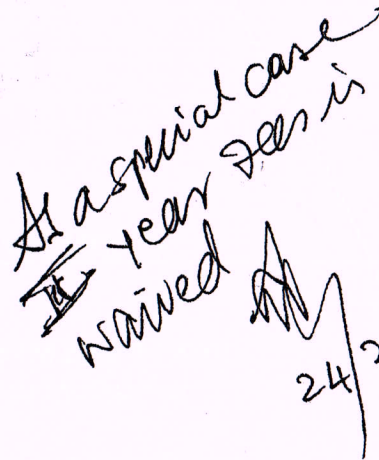 As a special case
II Year fees is
waived
24/